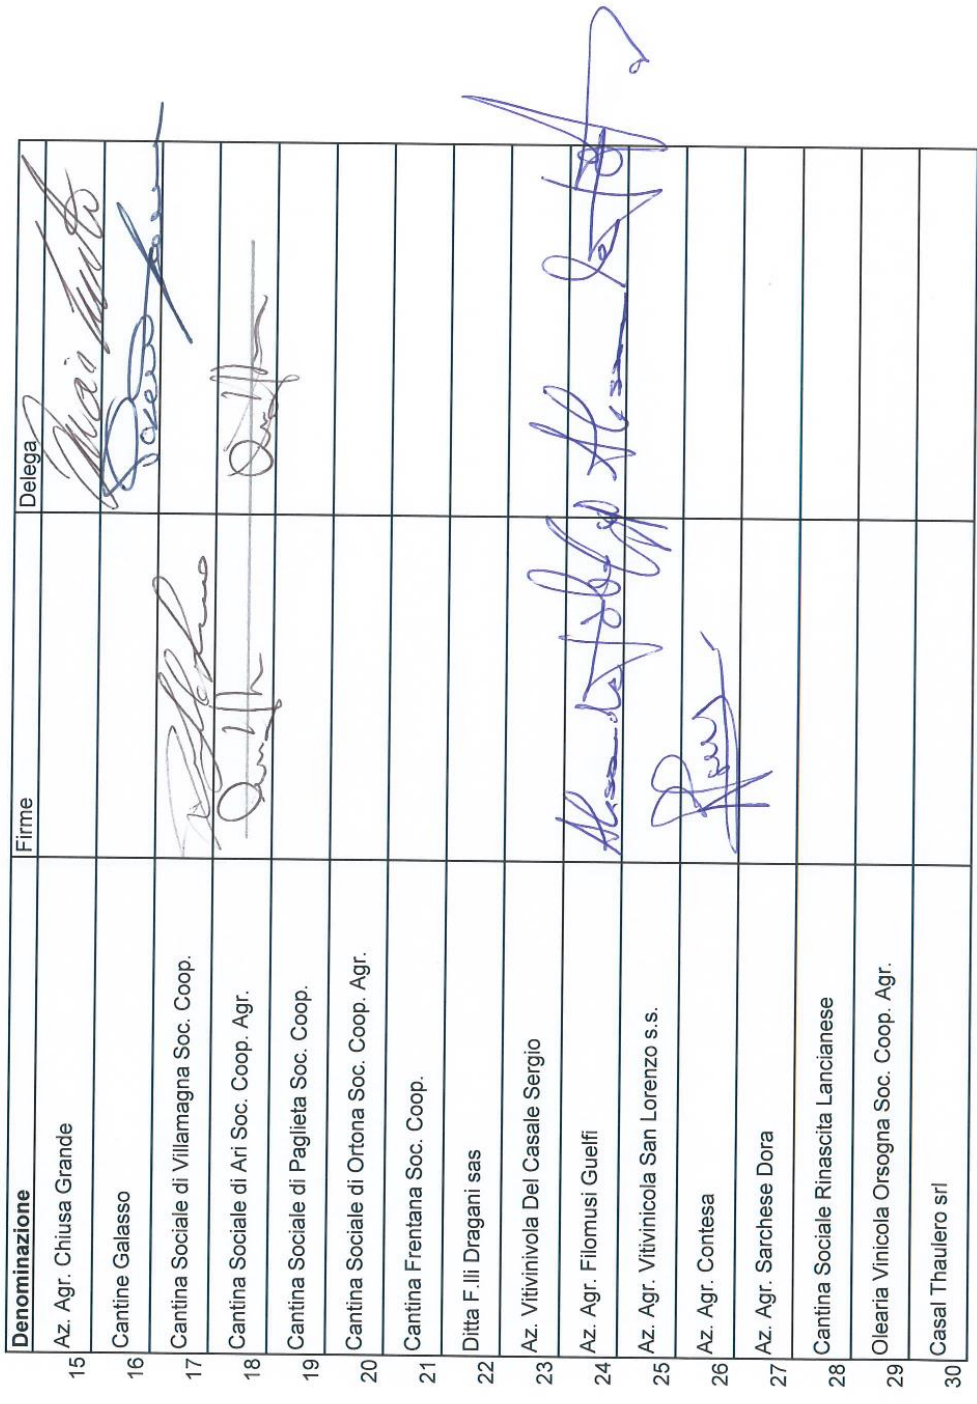 Denominazione Firme Delega
15 Az. Agr. Chiusa Grande
16 Cantine Galasso
17 Cantina Sociale di Villamagna Soc. Coop.
18 Cantina Sociale di Ari Soc. Coop. Agr.
19 Cantina Sociale di Paglieta Soc. Coop.
20 Cantina Sociale di Ortona Soc. Coop. Agr.
21 Cantina Frentana Soc. Coop.
22 Ditta F.lli Dragani sas
23 Az. Vitivinivola Del Casale Sergio
24 Az. Agr. Filomusi Guelfi
25 Az. Agr. Vitivinicola San Lorenzo s.s.
26 Az. Agr. Contesa
27 Az. Agr. Sarchese Dora
28 Cantina Sociale Rinascita Lancianese
29 Olearia Vinicola Orsogna Soc. Coop. Agr.
30 Casal Thaulero srl